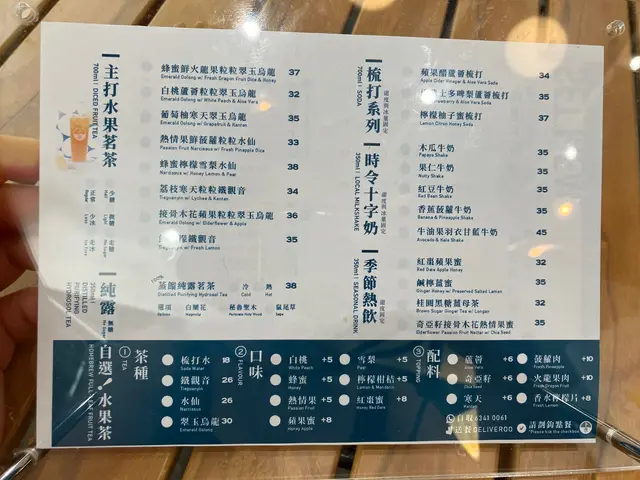 主打水果茗茶
700ml | DICED FRUIT TEA
少糖
微糖
走糖
正常
少冰
走冰
蜂蜜鮮火龍果粒粒翠玉烏龍 37
Emerald Oolong w/ Fresh Dragon Fruit Dice & Honey
白桃蘆薈粒粒翠玉烏龍 32
Emerald Oolong w/ White Peach & Aloe Vera
葡萄柚寒天翠玉烏龍 35
Emerald Oolong w/ Grapefruit & Kanten
熱情果鮮菠蘿粒粒水仙 33
Passion Fruit Narcissus w/ Fresh Pineapple Dice
蜂蜜檸檬雪梨水仙 38
Narcissus w/ Honey Lemon & Pear
荔枝寒天粒粒鐵觀音 34
Tieguanyin w/ Lychee & Kanten
接骨木花蘋果粒粒翠玉烏龍 36
Emerald Oolong w/ Elderflower & Apple
檬鐵觀音 35
Tieguanyin w/ Fresh Lemon
純露
無糖
350ml |
DISTILLED
PURIFYING
HYDROSOL TEA
100%
蒸餾純露茗茶 冷 熱 38
Distilled Purifying Hydrosol Tea Cold Hot
白蘭花 秘魯聖木 鼠尾草
Magnolia Peruvian Holy Wood Sage
梳打系列
700ml | SODA
甜度與冰量固定
蘋果醋蘆薈梳打 34
Apple Cider Vinegar & Aloe Vera Soda
士多啤梨蘆薈梳打 35
Strawberry & Aloe Vera Soda
檸檬柚子蜜梳打 37
Lemon Citron Honey Soda
時令十字奶
350ml | LOCAL MILKSHAKE
甜度與冰量固定
木瓜牛奶 35
Papaya Shake
果仁牛奶 35
Nutty Shake
紅豆牛奶 35
Red Bean Shake
香蕉菠蘿牛奶 35
Banana & Pineapple Shake
牛油果羽衣甘藍牛奶 45
Avocado & Kale Shake
季節熱飲
350ml | SEASONAL DRINK
甜度固定
紅棗蘋果蜜 32
Red Date Apple Honey
鹹檸薑蜜 35
Ginger Honey w/ Preserved Salted Lemon
桂圓黑糖薑母茶 32
Brown Sugar Ginger Tea w/ Longan
奇亞籽接骨木花熱情果蜜 35
Elderflower Passion Fruit Nectar w/ Chia Seed
自選！水果茶
HOMEBREW FULL LEAF FRUIT TEA
① 茶種
TEA
梳打水 18
Soda Water
鐵觀音 26
Tieguanyin
水仙 26
Narcissus
翠玉烏龍 30
Emerald Oolong
② 口味
FLAVOUR
白桃 +5
White Peach
蜂蜜 +5
Honey
熱情果 +5
Passion Fruit
蘋果蜜 +8
Honey Apple
雪梨 +5
Pear
檸檬柑桔 +5
Lemon & Mandarin
紅棗蜜 +8
Honey Red Date
③ 配料
TOPPING
蘆薈 +6
Aloe Vera
奇亞籽 +6
Chia Seed
寒天 +6
Kanten
鮮菠蘿肉 +10
Fresh Pineapple
火龍果肉 +10
Fresh Dragon Fruit
香水檸檬片 +8
Fresh Lemon
自取 6241 0061
送餐 DELIVEROO
請剔鉤點餐
*Please tick the checkbox